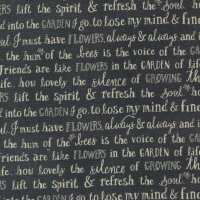 RS lift the Spirit & refresh the Soul. h
d into the GARDEN I go, to lose my mind & fin
ul. I must have FLOWERS, always & always and i
the hum of the bees is the voice of the GA
Friends are like FLOWERS in the GARDEN of lif
ife. how lovely the silence of GROWING th
RS lift the Spirit & refresh the Soul. h
d into the GARDEN I go, to lose my mind & fin
ul. I must have FLOWERS, always & always and i
the hum of the bees is the voice of the GA
riends are like FLOWERS in the GARDEN of lif
fe. how lovely the silence of GROWING th
RS lift the Spirit & refresh the Soul h
into the GARDEN I go, to lose my mind & fin